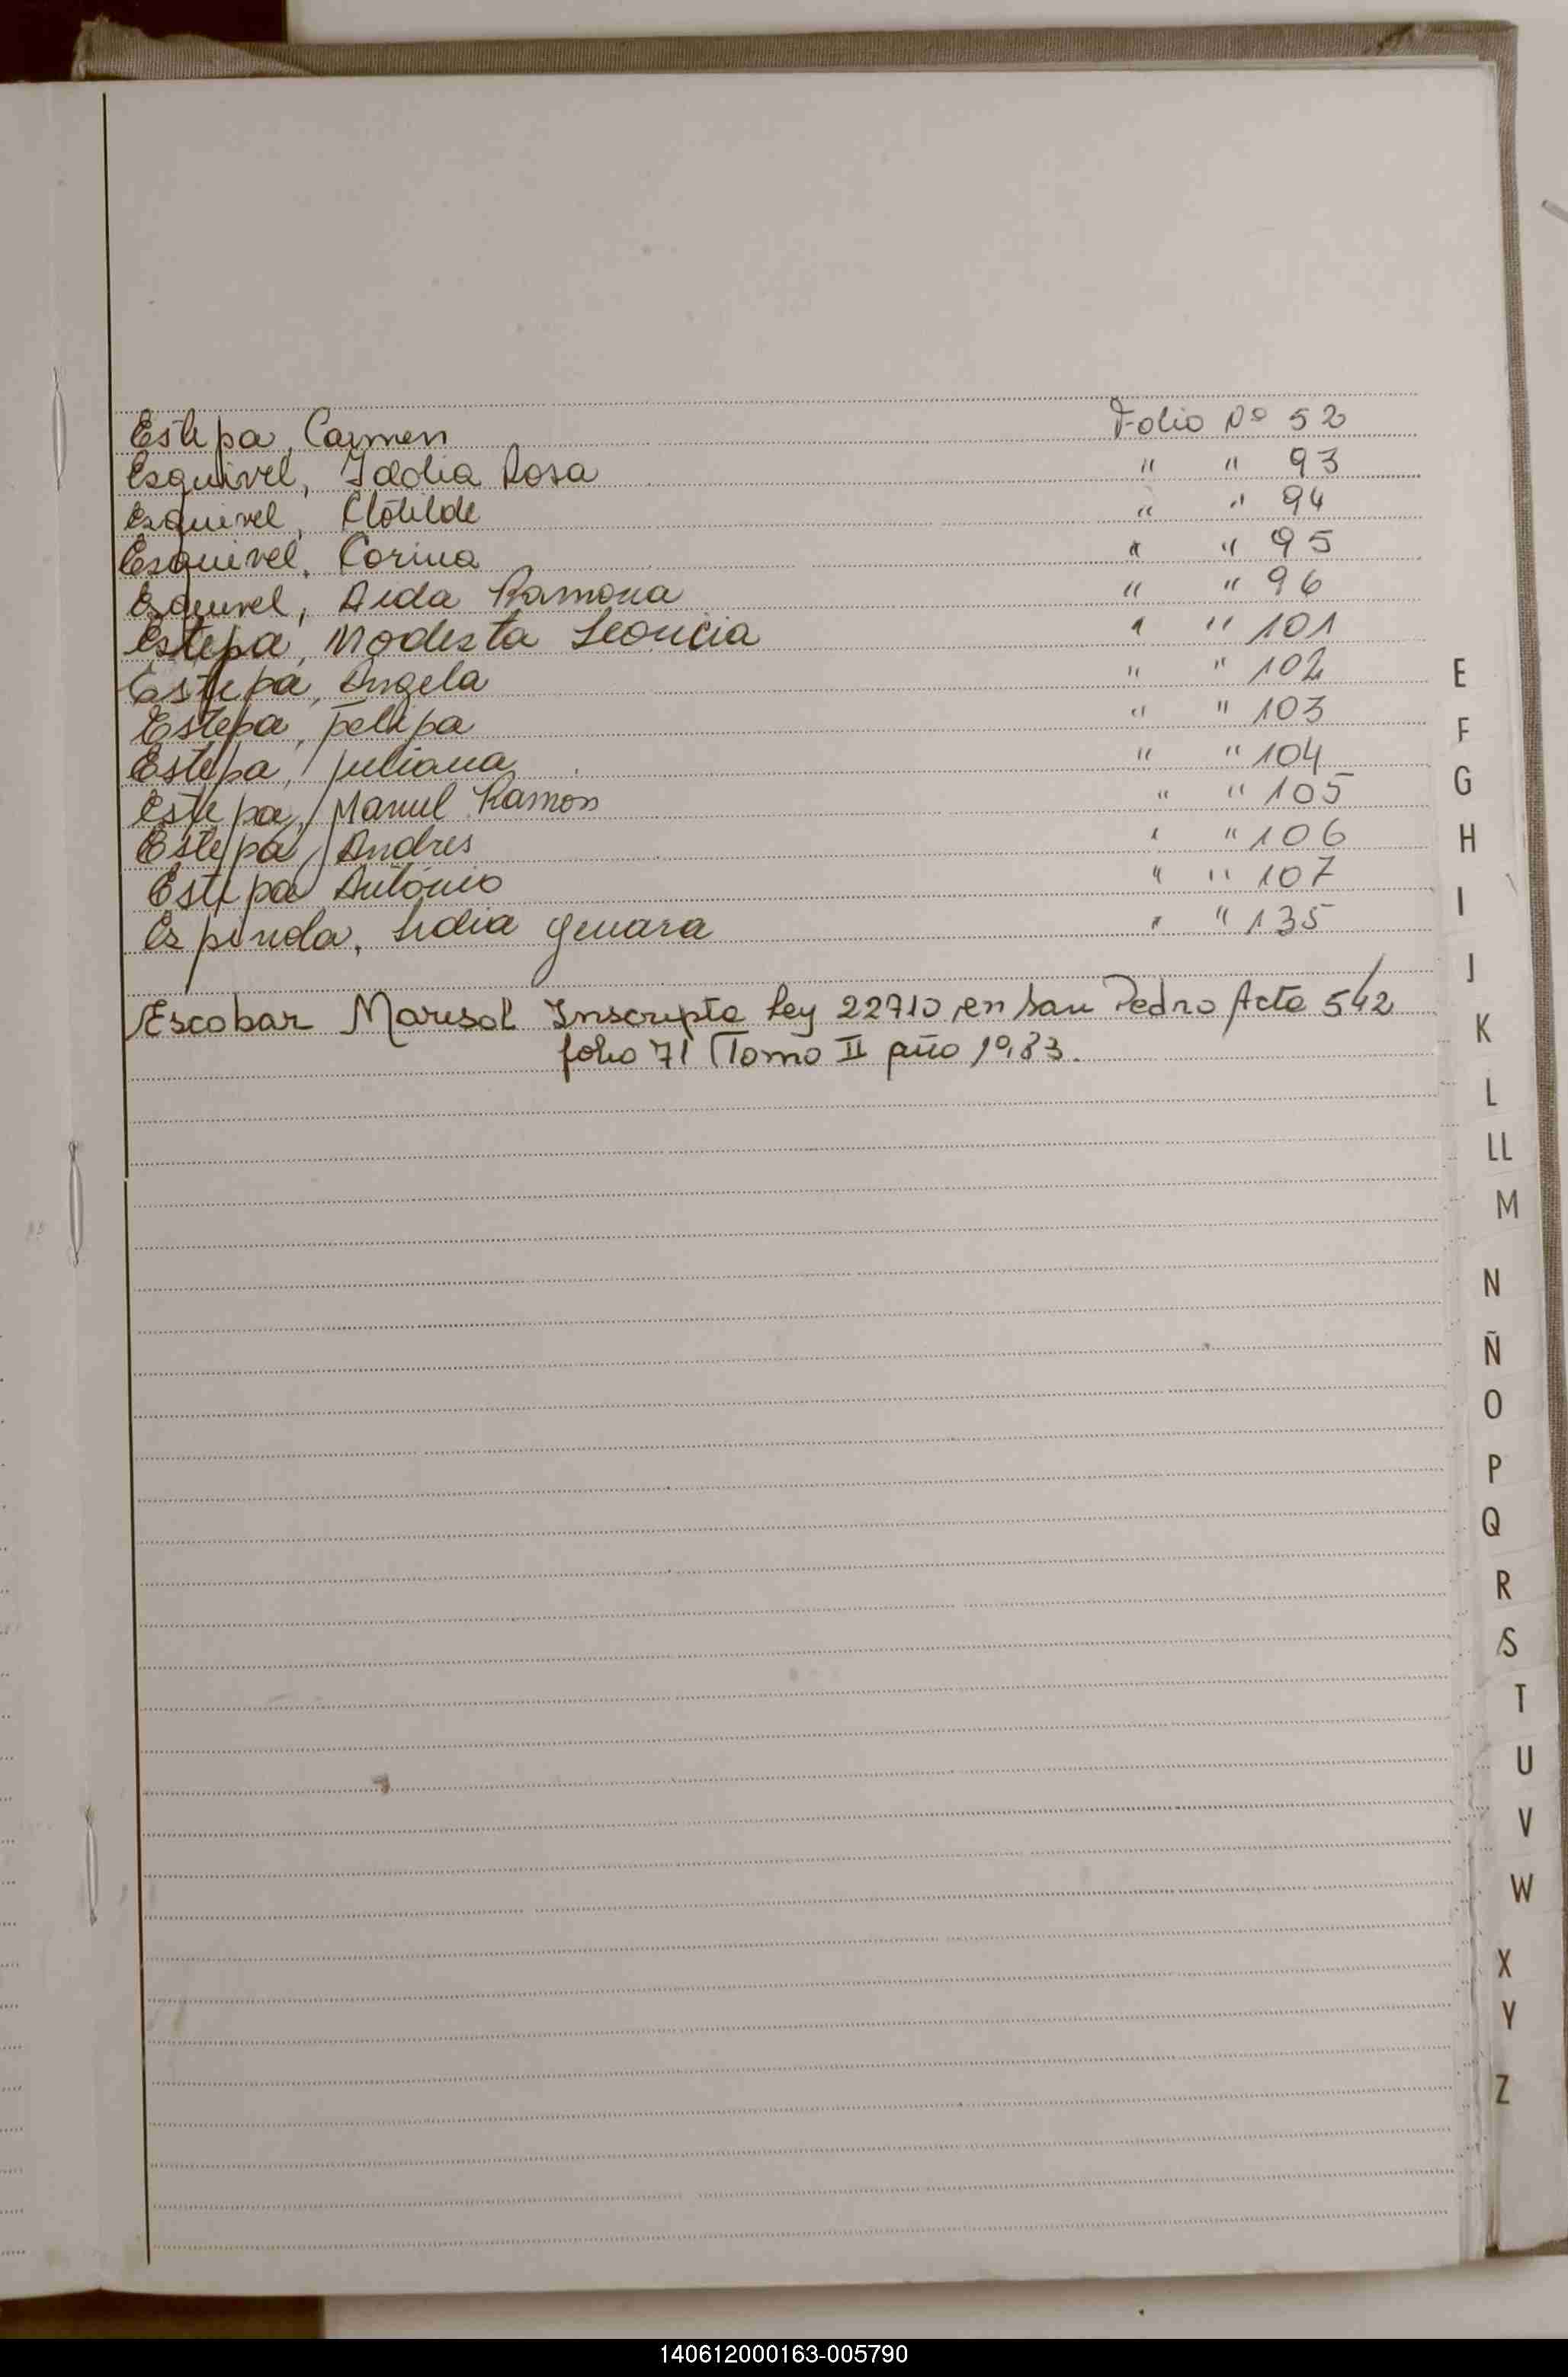 Estepa, Carmen Folio Nº 52
Esquivel, Idolia Rosa " " 93
Esquivel, Clotilde " " 94
Esquivel, Corina " " 95
Esquivel, Aida Ramona " " 96
Estepa, Modesta Leoncia " " 101
Estepa, Angela " " 102
Estepa, Felipa " " 103
Estepa, Juliana " " 104
Estepa, Manuel Ramon " " 105
Estepa, Andres " " 106
Estepa Antonio " " 107
Espinola, Lidia Genara " " 135
Escobar Marisol Inscripta Ley 22710 en San Pedro Acta 542
folio 71 Tomo II año 1983.
E
F
G
H
I
J
K
L
LL
M
N
Ñ
O
P
Q
R
S
T
U
V
W
X
Y
Z
140612000163-005790